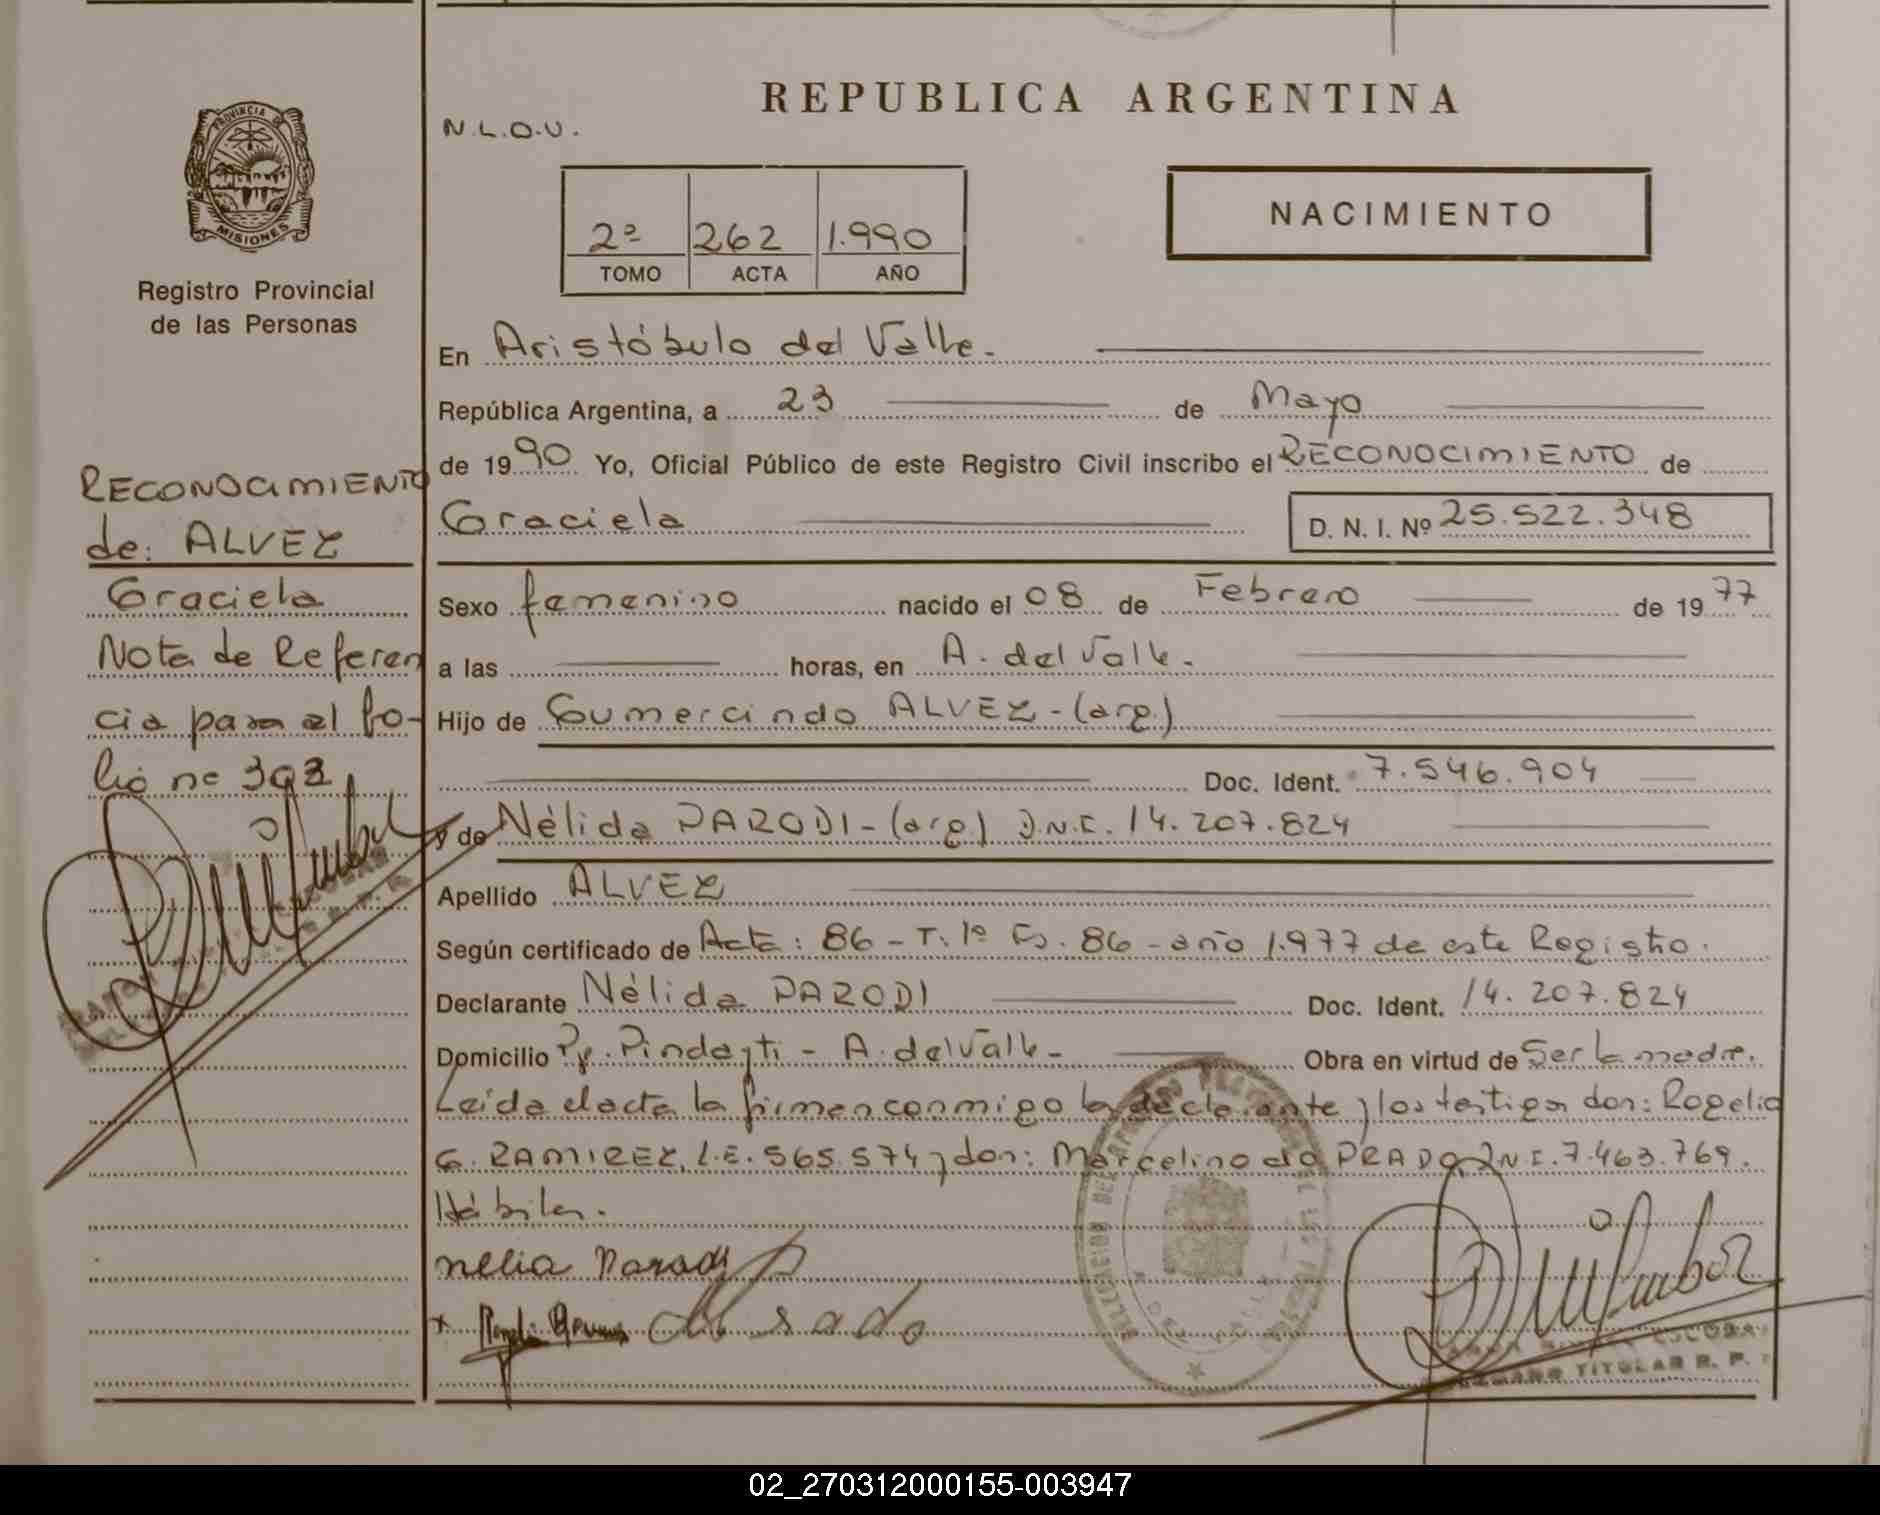 PROVINCIA DE
MISIONES
Registro Provincial
de las Personas
RECONOCIMIENTO
de: ALVEZ
Graciela
Nota de Referen
cia para el fo-
lio nº 393
REPUBLICA ARGENTINA
N.L.O.V.
2º 262 1.990
TOMO ACTA AÑO
NACIMIENTO
En Aristóbulo del Valle.
República Argentina, a 23 de Mayo
de 1990 Yo, Oficial Público de este Registro Civil inscribo el RECONOCIMIENTO de
Graciela D. N. I. Nº 25.522.348
Sexo femenino nacido el 08 de Febrero de 1977
a las horas, en A. del Valle.
Hijo de Gumercindo ALVEZ - (arg.)
Doc. Ident. 7.546.904
y de Nélida PARODI - (arg.) D.N.I. 14.207.824
Apellido ALVEZ
Según certificado de Acta: 86 - T. 1º Fs. 86 - año 1.977 de este Registro.
Declarante Nélida PARODI Doc. Ident. 14.207.824
Domicilio Pje. Pindayti - A. del Valle - Obra en virtud de Ser la madre.
Leída el acta la firman conmigo la declarante y los testigos don: Rogelio
G. RAMIREZ, L.E. 565.574 y don: Marcelino do PRADO, D.N.I. 7.463.769.
Hábiles.
nelia Parodi
TITULAR R. P.
02_270312000155-003947